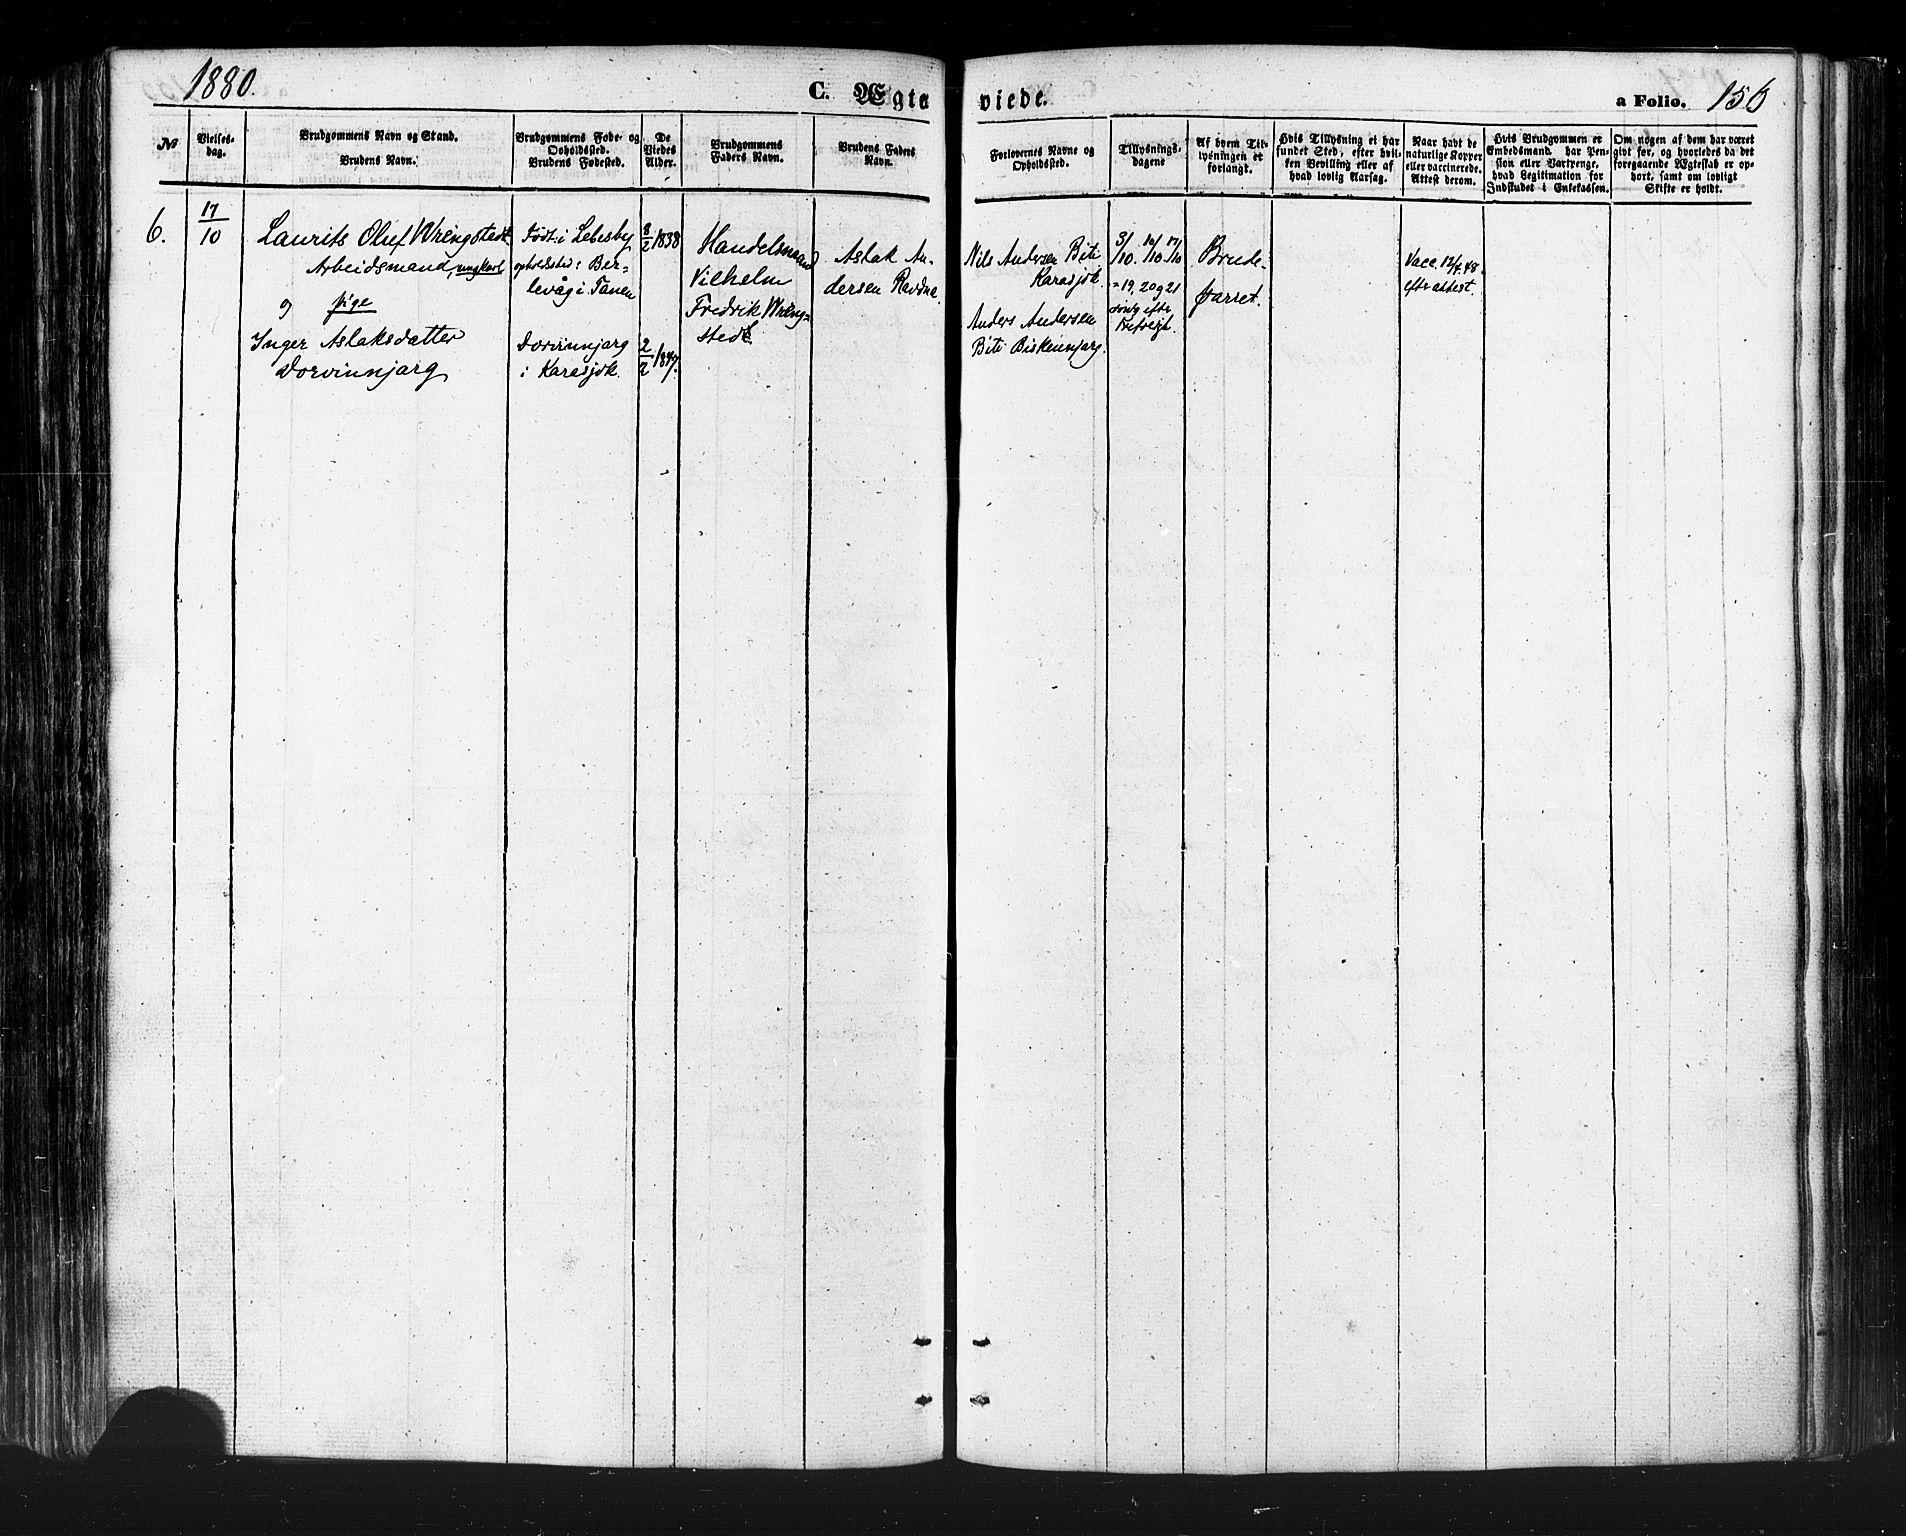 1880.
C. Ægte viede.
a Folio. 156
№
Vielses-
dag.
Brudgommens Navn og Stand.
Brudens Navn.
Brudgommens Føde- og
Opholdssted.
Brudens Fødested.
De
Viedes
Alder.
Brudgommens
Faders Navn.
Brudens Faders
Navn.
Forlovernes Navne og
Opholdssted.
Tillysnings-
dagene
Af hvem Til-
lysningen er
forlangt.
Hvis Tillysning ei har
fundet Sted, efter hvil-
ken Bevilling eller af
hvad lovlig Aarsag.
Naar havt de
naturlige Kopper
eller vaccinerede.
Attest derom.
Hvis Brudgommen er
Embedsmand, har Pen-
sion eller Vartpenge,
hvad Legitimation for
Indskudet i Enkekassen.
Om nogen af dem har været
givt før, og hvorledes da det
foregaaende Ægteskab er op-
hørt, samt om lovligt
Skifte er holdt.
6.
17/10
Laurits Oluf Wrengstedt
Arbeidsmand, ungkarl
og pige
Inger Aslaksdatter
Dorvinnjarg
Født i Lebesby
opholdssted i Ber-
levåg i Tanen
Dorvinnjarg
i Karasjok.
8/2 1838
2/2 1847.
Handelsmand
Vilhelm
Fredrik Wreng-
stedt
Aslak An-
dersen Ravdna.
Nils Andersen Biti
Karasjok.
Anders Andersen
Biti Biskennjarg.
3/10. 10/10. 17/10
= 19, 20 og 21
efter
Brude-
parret.
Vacc. 12/4. 48.
efter attest.